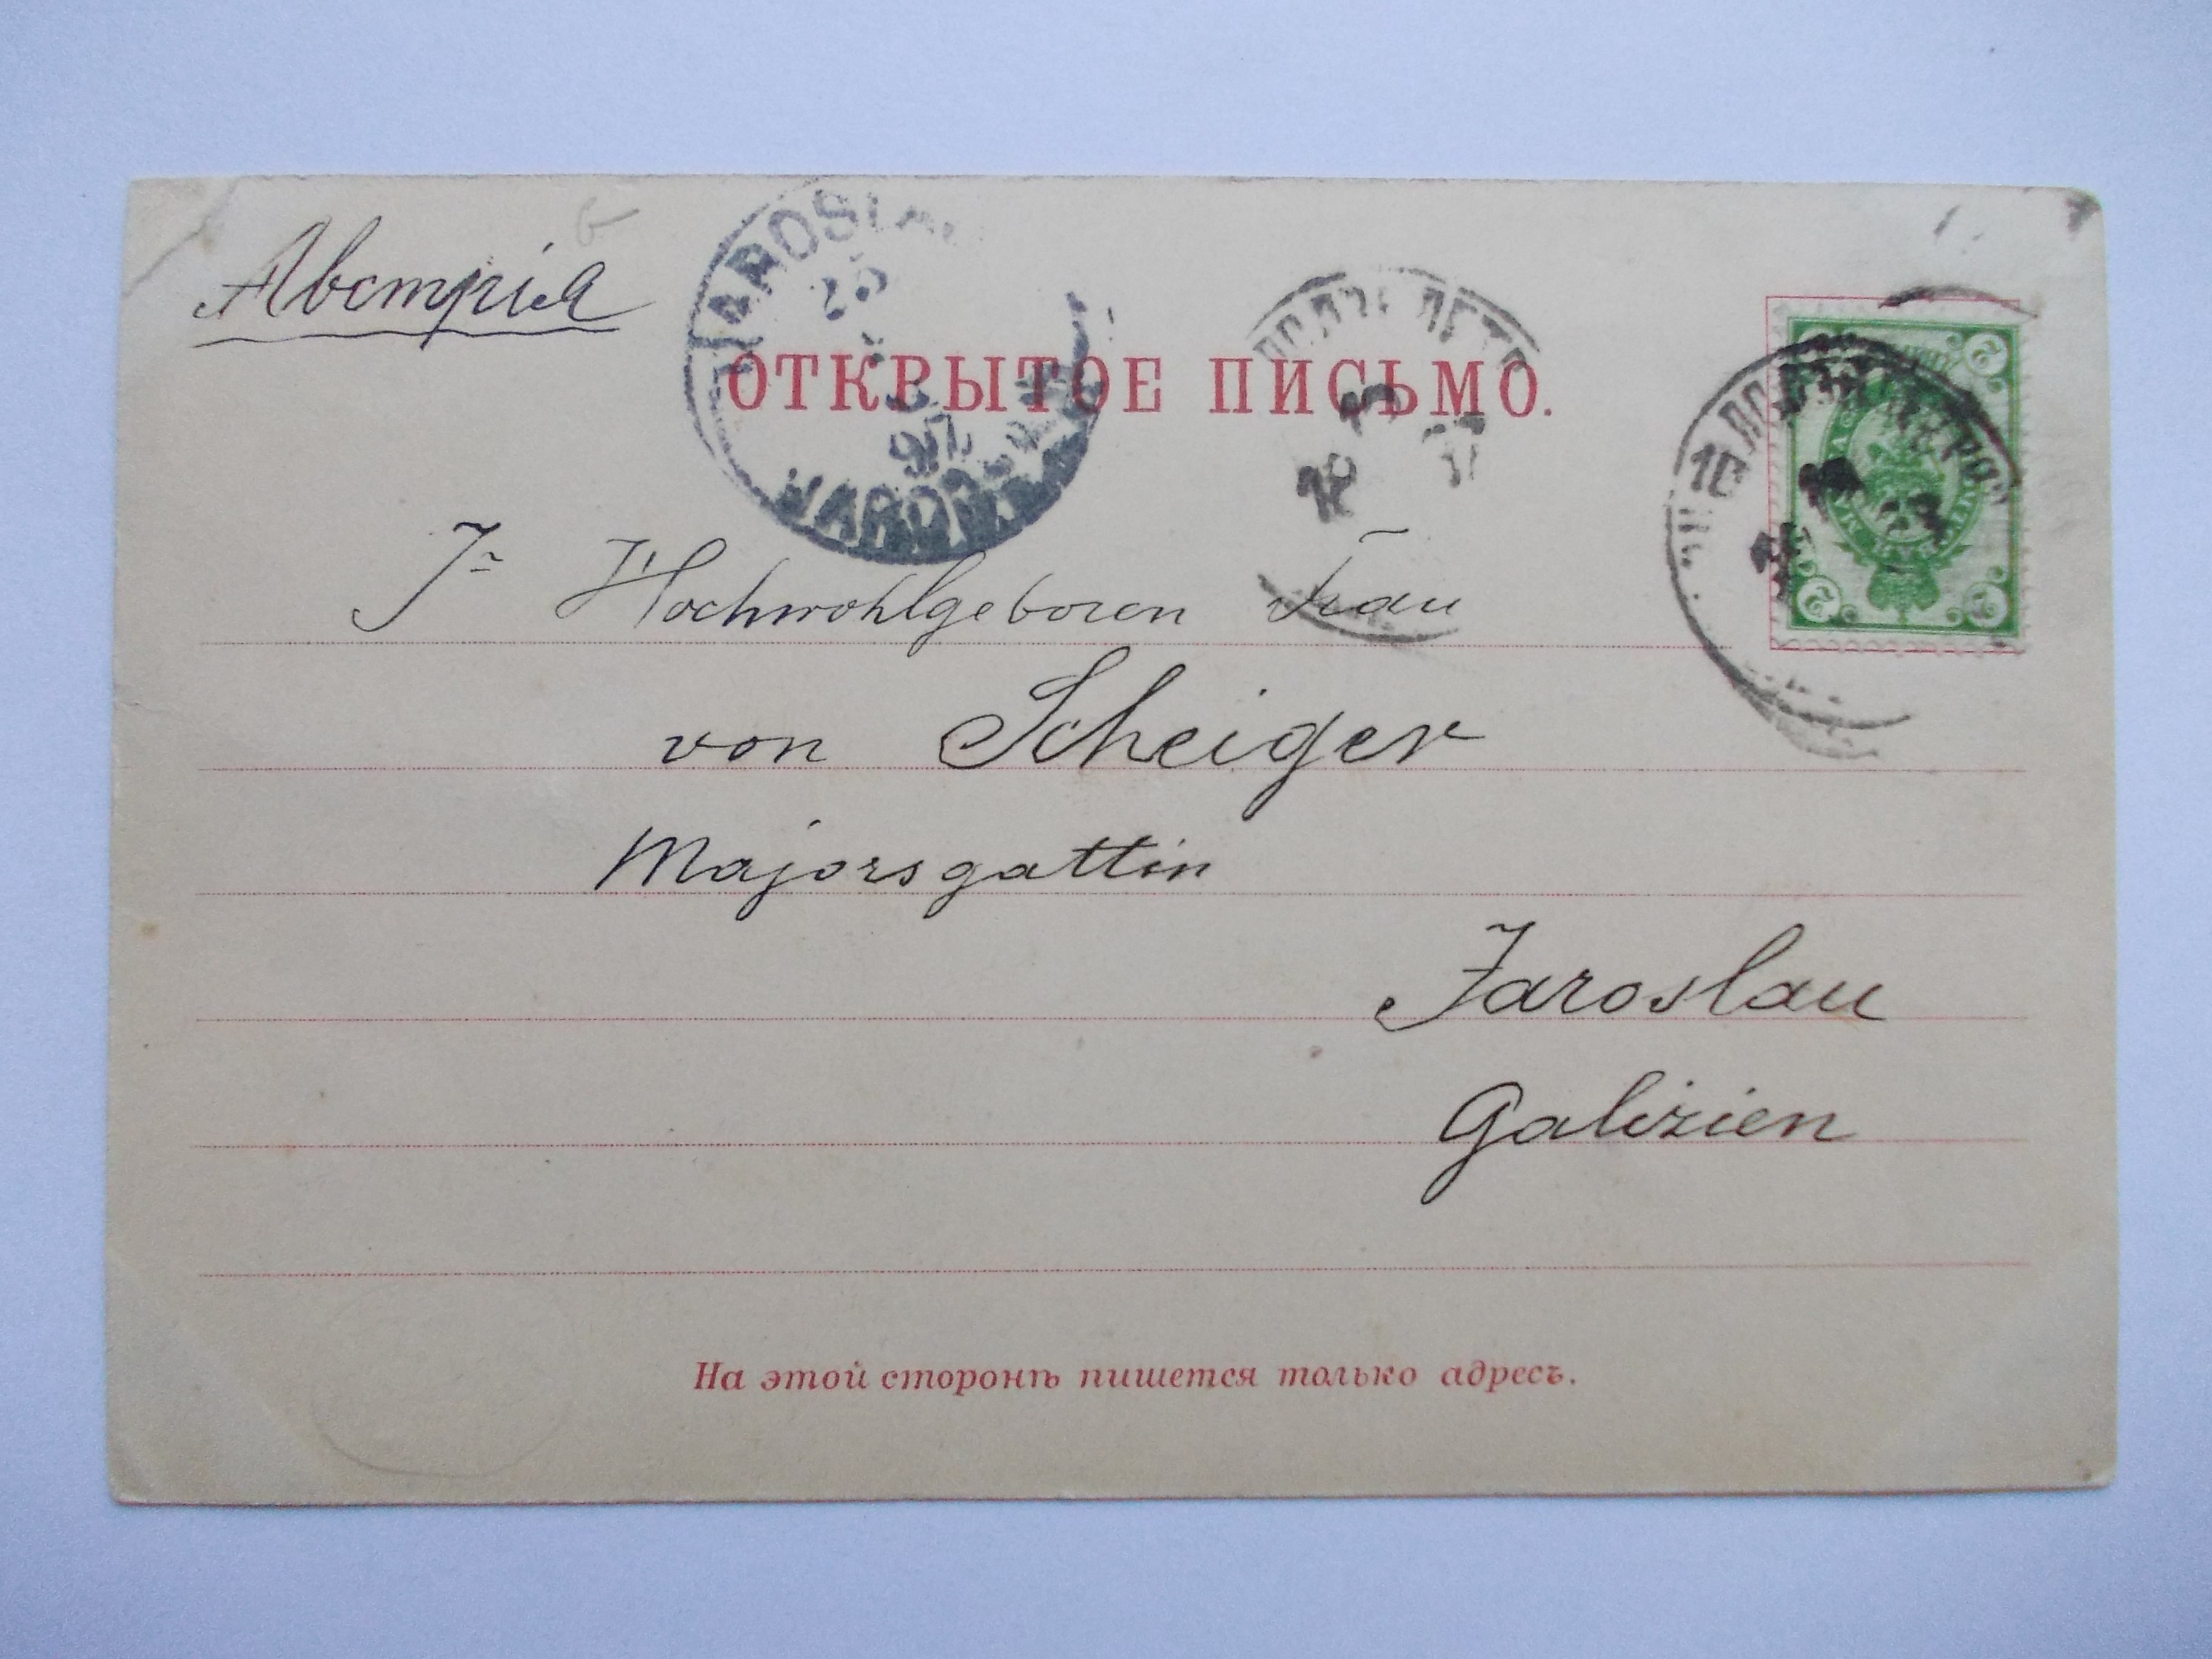 Австрія
JAROSLAU
25
97
JAROSŁAW
ОТКРЫТОЕ ПИСЬМО.
Jr Hochwohlgeboren Frau
von Scheiger
Majorsgattin
Jaroslau
Galizien
На этой сторонѣ пишется только адресъ.
2
2
2
10